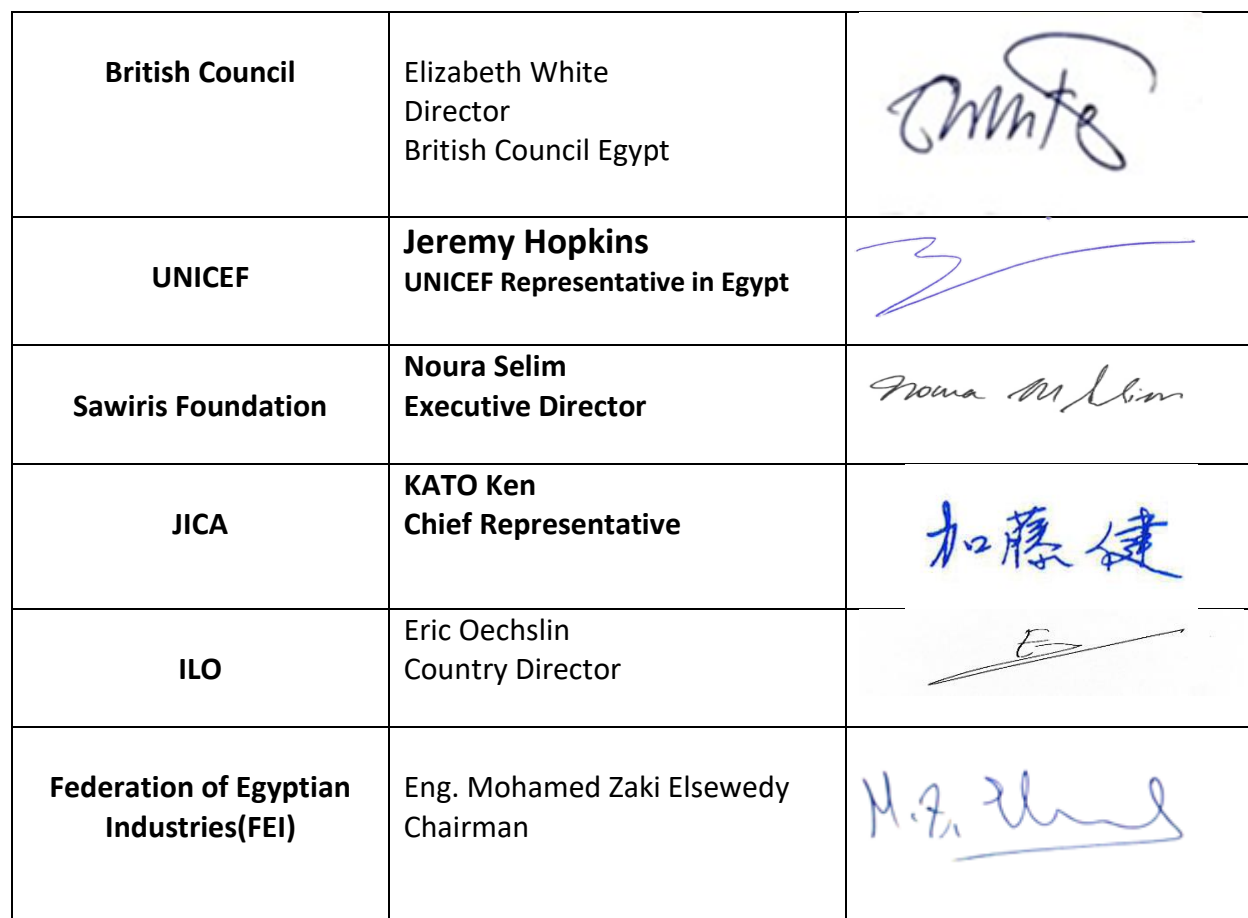 British Council
Elizabeth White
Director
British Council Egypt
UNICEF
Jeremy Hopkins
UNICEF Representative in Egypt
Sawiris Foundation
Noura Selim
Executive Director
Noura M Selim
JICA
KATO Ken
Chief Representative
加藤 健
ILO
Eric Oechslin
Country Director
E
Federation of Egyptian
Industries(FEI)
Eng. Mohamed Zaki Elsewedy
Chairman
M.Z.